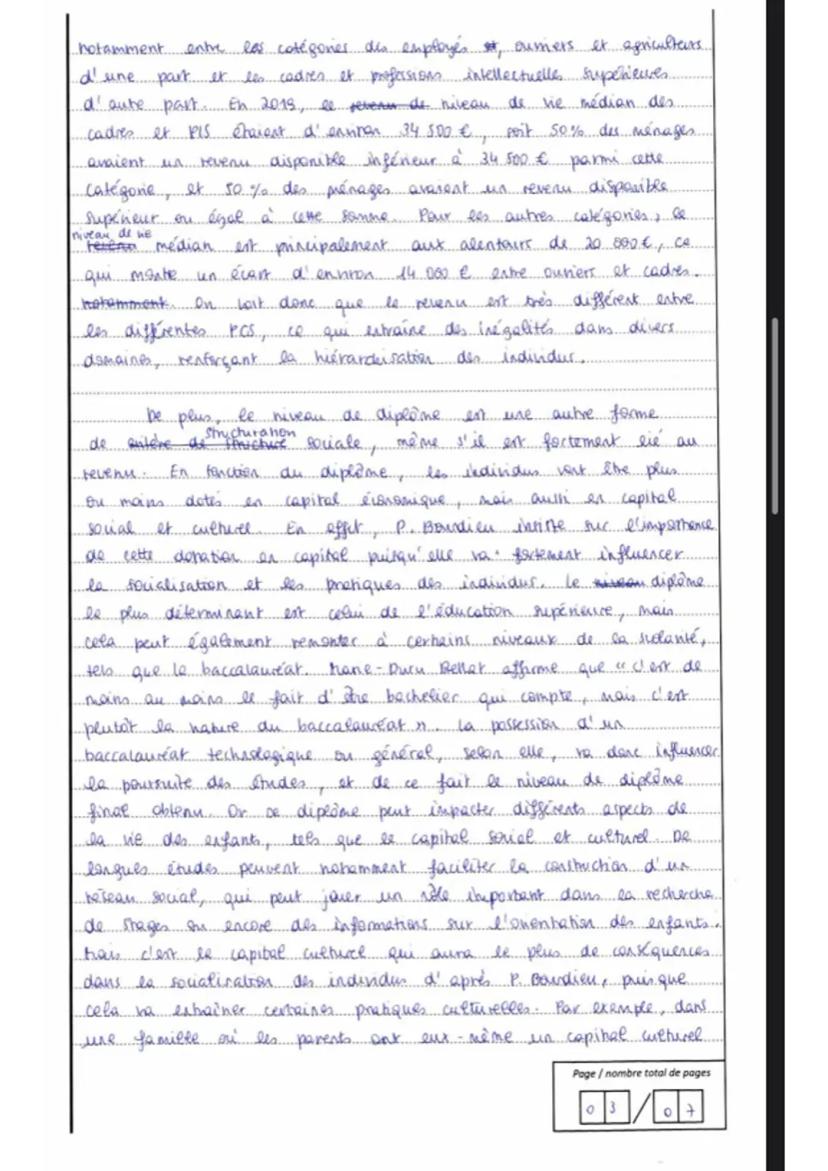 notamment entre les catégories des employés et, ouvriers et agriculteurs
d'une part et les cadres et professions intellectuelles supérieures
d'autre part. En 2018, le revenu de niveau de vie médian des
cadres et PIS étaient d'environ 34 500 €, soit 50% des ménages
avaient un revenu disponible inférieur à 34 500 € parmi cette
catégorie, et 50 % des ménages avaient un revenu disponible
supérieur ou égal à cette somme. Pour les autres catégories, ce
niveau de vie
revenu médian est principalement aux alentours de 20 000 €, ce
qui montre un écart d'environ 14 000 € entre ouvriers et cadres.
notamment. On voit donc que le revenu est très différent entre
les différentes PCS, ce qui entraîne des inégalités dans divers
domaines, renforçant la hiérarchisation des individus.
De plus, le niveau de diplôme est une autre forme
structuration
de critère de structure sociale, même s'il est fortement lié au
revenu. En fonction du diplôme, les individus vont être plus
ou moins dotés en capital économique, mais aussi en capital
social et culturel. En effet, P. Bourdieu insiste sur l'importance
de cette dotation en capital puisqu'elle va fortement influencer
la socialisation et les pratiques des individus. Le niveau diplôme
le plus déterminant est celui de l'éducation supérieure, mais
cela peut également remonter à certains niveaux de la scolarité,
tels que le baccalauréat. Marie-Duru Bellat affirme que "c'est de
moins au moins le fait d'être bachelier qui compte, mais c'est
plutôt la nature du baccalauréat". La possession d'un
baccalauréat technologique ou général, selon elle, va donc influencer
la poursuite des études, et de ce fait le niveau de diplôme
final obtenu. Or ce diplôme peut impacter différents aspects de
la vie des enfants, tels que le capital social et culturel. De
longues études peuvent notamment faciliter la construction d'un
réseau social, qui peut jouer un rôle important dans la recherche
de stages ou encore des informations sur l'orientation des enfants.
Mais c'est le capital culturel qui aura le plus de conséquences
dans la socialisation des individus d'après P. Bourdieu, puisque
cela va entraîner certaines pratiques culturelles. Par exemple, dans
une famille où les parents ont eux-même un capital culturel
Page / nombre total de pages
03 / 07